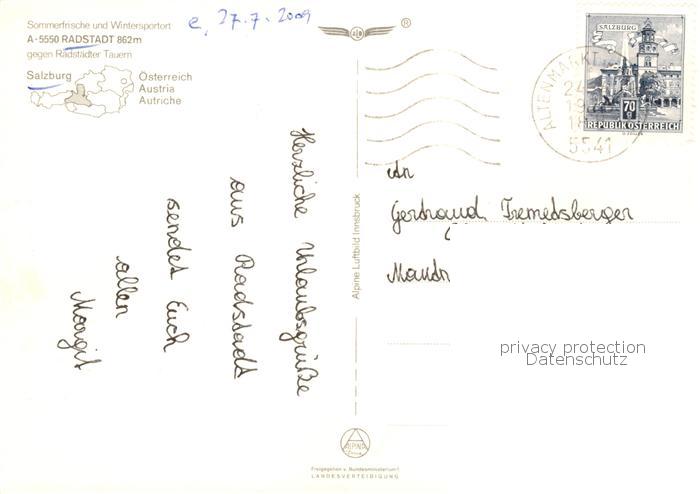 Sommerfrische und Wintersportort
A-5550 RADSTADT 862m
gegen Radstädter Tauern
Salzburg
Österreich
Austria
Autriche
e, 27.7.2009
®
SALZBURG
70 g
REPUBLIK ÖSTERREICH
ALTENMARKT
5541
Herzliche Urlaubsgrüße
aus Radstadt
sendet Euch
allen
Margit
Alpine Luftbild Innsbruck
An
Gertraud Tremetsberger
privacy protection
Datenschutz
ALPINE
Freigegeben v. Bundesministerium f.
LANDESVERTEIDIGUNG